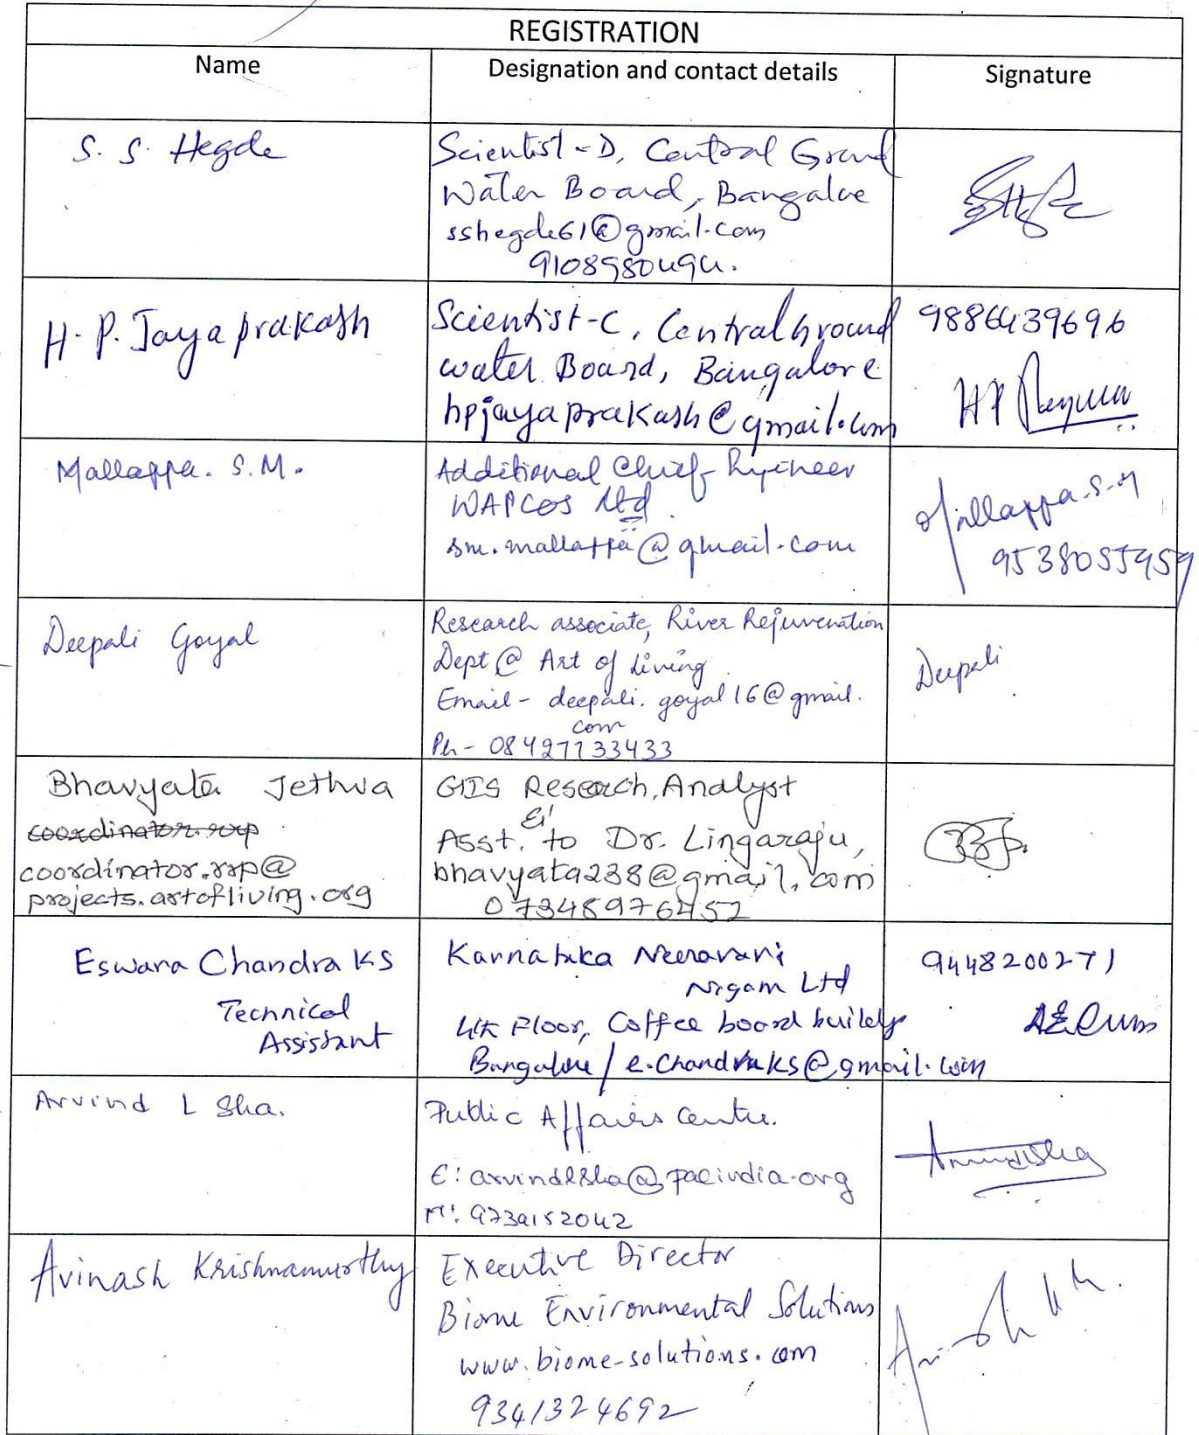 REGISTRATION
Name
Designation and contact details
Signature
S. S. Hegde
Scientist - D, Central Ground
Water Board, Bangalore
sshegde61@gmail.com
9108980494.
H. P. Jayaprakash
Scientist-C, Central Ground
water Board, Bangalore
hpjayaprakash@gmail.com
9886439696
Mallappa. S.M.
Additional Chief Engineer
WAPCOS Ltd
sm.mallappa@gmail.com
Mallappa.S.M
9538055959
Deepali Goyal
Research associate, River Rejuvenation
Dept @ Art of Living
Email - deepali.goyal16@gmail.
com
Ph - 08427733433
Deepali
Bhavyata Jethwa
coordinator.rrp
coordinator.rrp@
projects.artofliving.org
GIS Research Analyst
&
Asst. to Dr. Lingaraju,
bhavyata238@gmail.com
07348976452
Eswara Chandra KS
Technical
Assistant
Karnataka Neeravari
Nigam Ltd
4th Floor, Coffee board
Bangalore / e.chandraks@gmail.com
9448200271
Arvind L Sha.
Public Affairs Centre.
E: arvindlsha@pacindia.org
M: 9739152042
Avinash Krishnamurthy
Executive Director
Biome Environmental Solutions
www.biome-solutions.com
9341324692